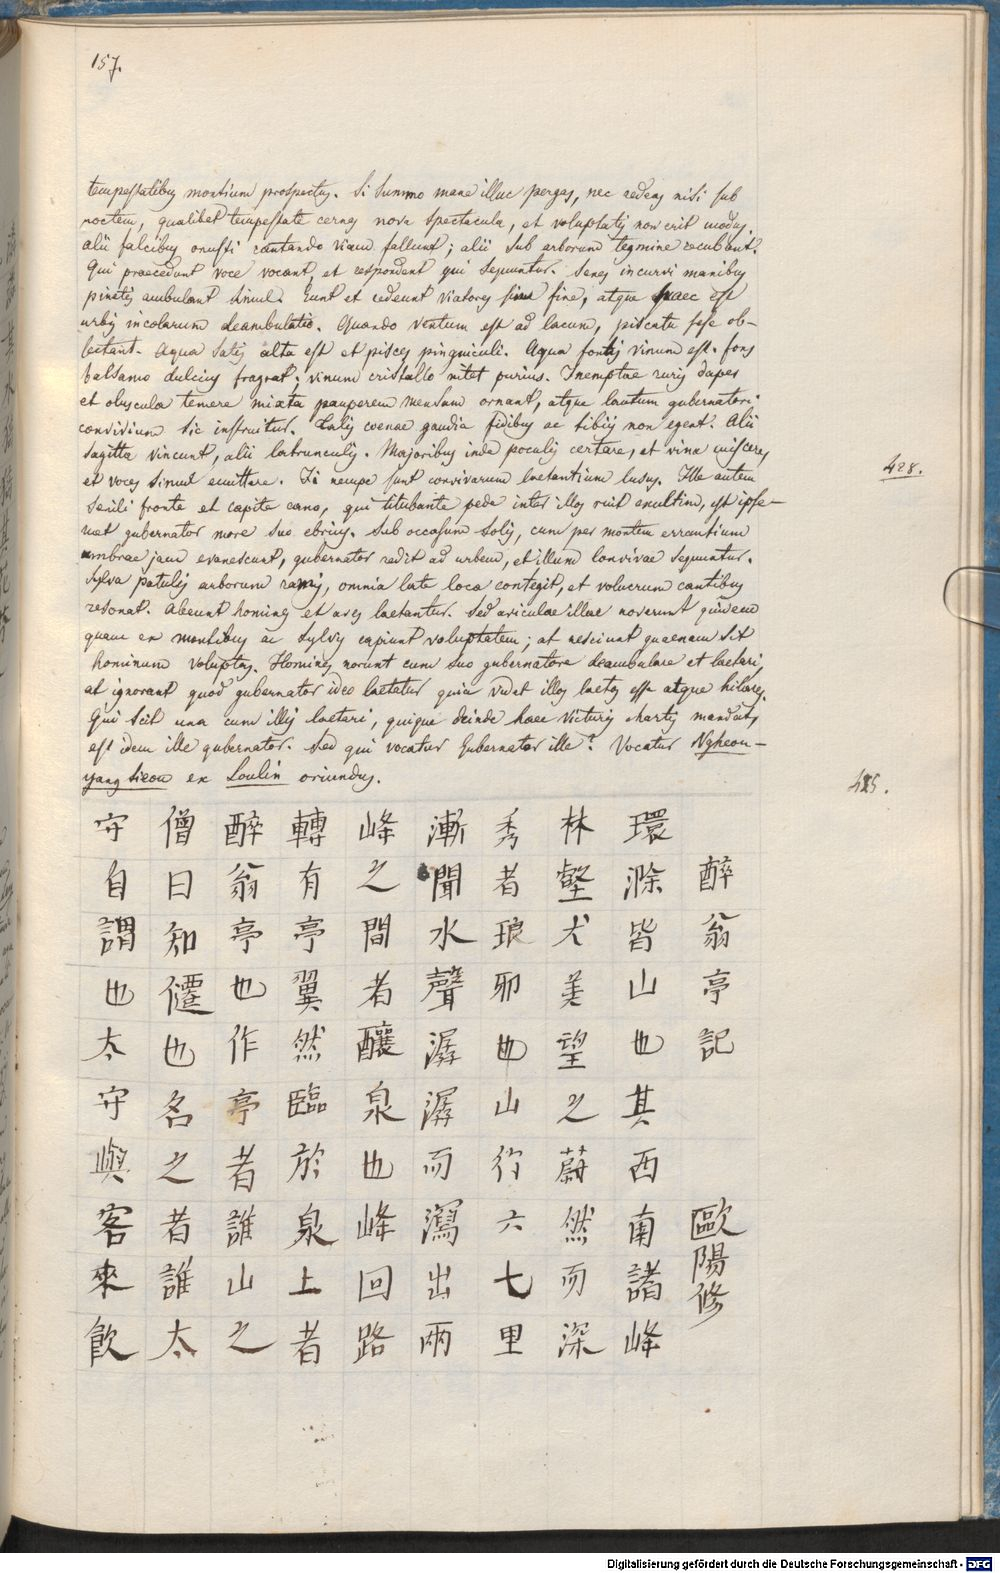 157.
tempestatibus montium prospectus. Si summo mane illuc perges, nec redeas nisi sub
noctem, qualibet tempestate cernes nova spectacula, et voluptatis non erit modus.
alii falcibus onusti cantando viam fallunt; alii sub arborum tegmine recubant.
Qui praecedunt voce vocant, et respondent qui sequuntur. Senes incurvi manibus
pinetis ambulant simul. Eunt et redeunt viatores sine fine, atque haec est
urbis incolarum deambulatio. Quando ventum est ad lacum, piscatu sese ob-
lectant. Aqua satis alta est et pisces pinguiculi. Aqua fontis vinum est. fons
balsamo dulcius fragrat; vinum cristallo nitet purius. Inemptae ruris dapes
et oluscula temere mixta pauperem mensam ornant, atque lautum gubernatori
convivium sic instruitur. Talis coenae gaudia fidibus ac tibiis non egent. Alii
sagitta vincunt, alii latrunculis. Majoribus inde poculis certare, et vina miscere,
et voces simul emittere. Ii nempe sunt convivarum laetantium lusus. Ille autem
428.
senili fronte et capite cano, qui titubante pede inter illos ruit exultim, est ipse-
met gubernator more suo ebrius. Sub occasum solis, cum per montem errantium
umbrae jam evanescunt, gubernator redit ad urbem, et illum convivae sequuntur.
Sylva patulis arborum ramis, omnia late loca contegit, et volucrum cantibus
resonat. Abeunt homines et aves laetantur. Sed aviculae illae norerunt quidem
quam ex montibus ac sylvis capiunt voluptatem; at nesciunt quaenam sit
hominum voluptas. Homines norunt cum suo gubernatore deambulare et laetari,
at ignorant quod gubernator ideo laetatur quia videt illos laetos esse atque hilares.
Qui scit una cum illis laetari, quique deinde haec victuris chartis mandat,
est idem ille gubernator. Sed qui vocatur Gubernator ille? Vocatur Ngheou-
yang sieou ex Loulin oriundus.
醉翁亭記 歐陽修
環滁皆山也其西南諸峰
林壑尤美望之蔚然而深
秀者琅邪也山行六七里
漸聞水聲潺潺而瀉出兩
峰之間者釀泉也峰回路
轉有亭翼然臨於泉上者
醉翁亭也作亭者誰山之
僧曰知僊也名之者誰太
守自謂也太守與客來飲
Digitalisierung gefördert durch die Deutsche Forschungsgemeinschaft - DFG